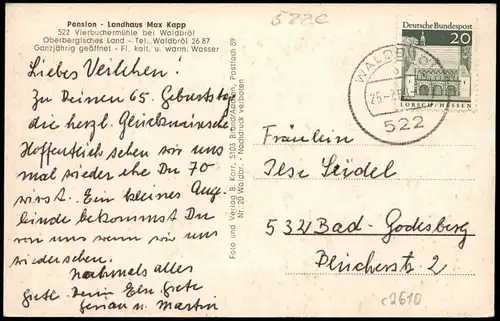 Pension - Landhaus Max Kapp
522 Vierbuchermühle bei Waldbröl
Oberbergisches Land - Tel. Waldbröl 26 87
Ganzjährig geöffnet - Fl. kalt. u. warm. Wasser
Liebes Veilchen!
Zu Deinem 65. Geburtstag
die herzl. Glückwünsche
Hoffentlich sehen wir uns
mal wieder ehe Du 70
wirst. Ein kleines Ange-
binde bekommst Du
von uns wenn wir uns
wiedersehen.
Nochmals alles
Gute Dein Eln. Grete
Genau u. Martin
Foto und Verlag B. Korr, 5103 Brand/Aachen, Postfach 89
Nr. 20 Waldbr. - Nachdruck verboten
522c
WALDBRÖL
25-7
522
Deutsche Bundespost
20
LORSCH/HESSEN
Fräulein
Ilse Seidel
532 Bad-Godesberg
Blücherstr. 2
c2610